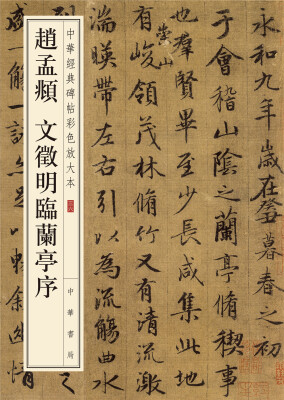 永和九年歲在癸丑暮春之初
于會稽山陰之蘭亭脩禊事
也群賢畢至少長咸集此
崇山
有峻領茂林脩竹又有清流激
湍暎帶左右引以為流觴曲水
中華經典碑帖彩色放大本
中華書局
趙孟頫 文徵明臨蘭亭序
一觴一詠